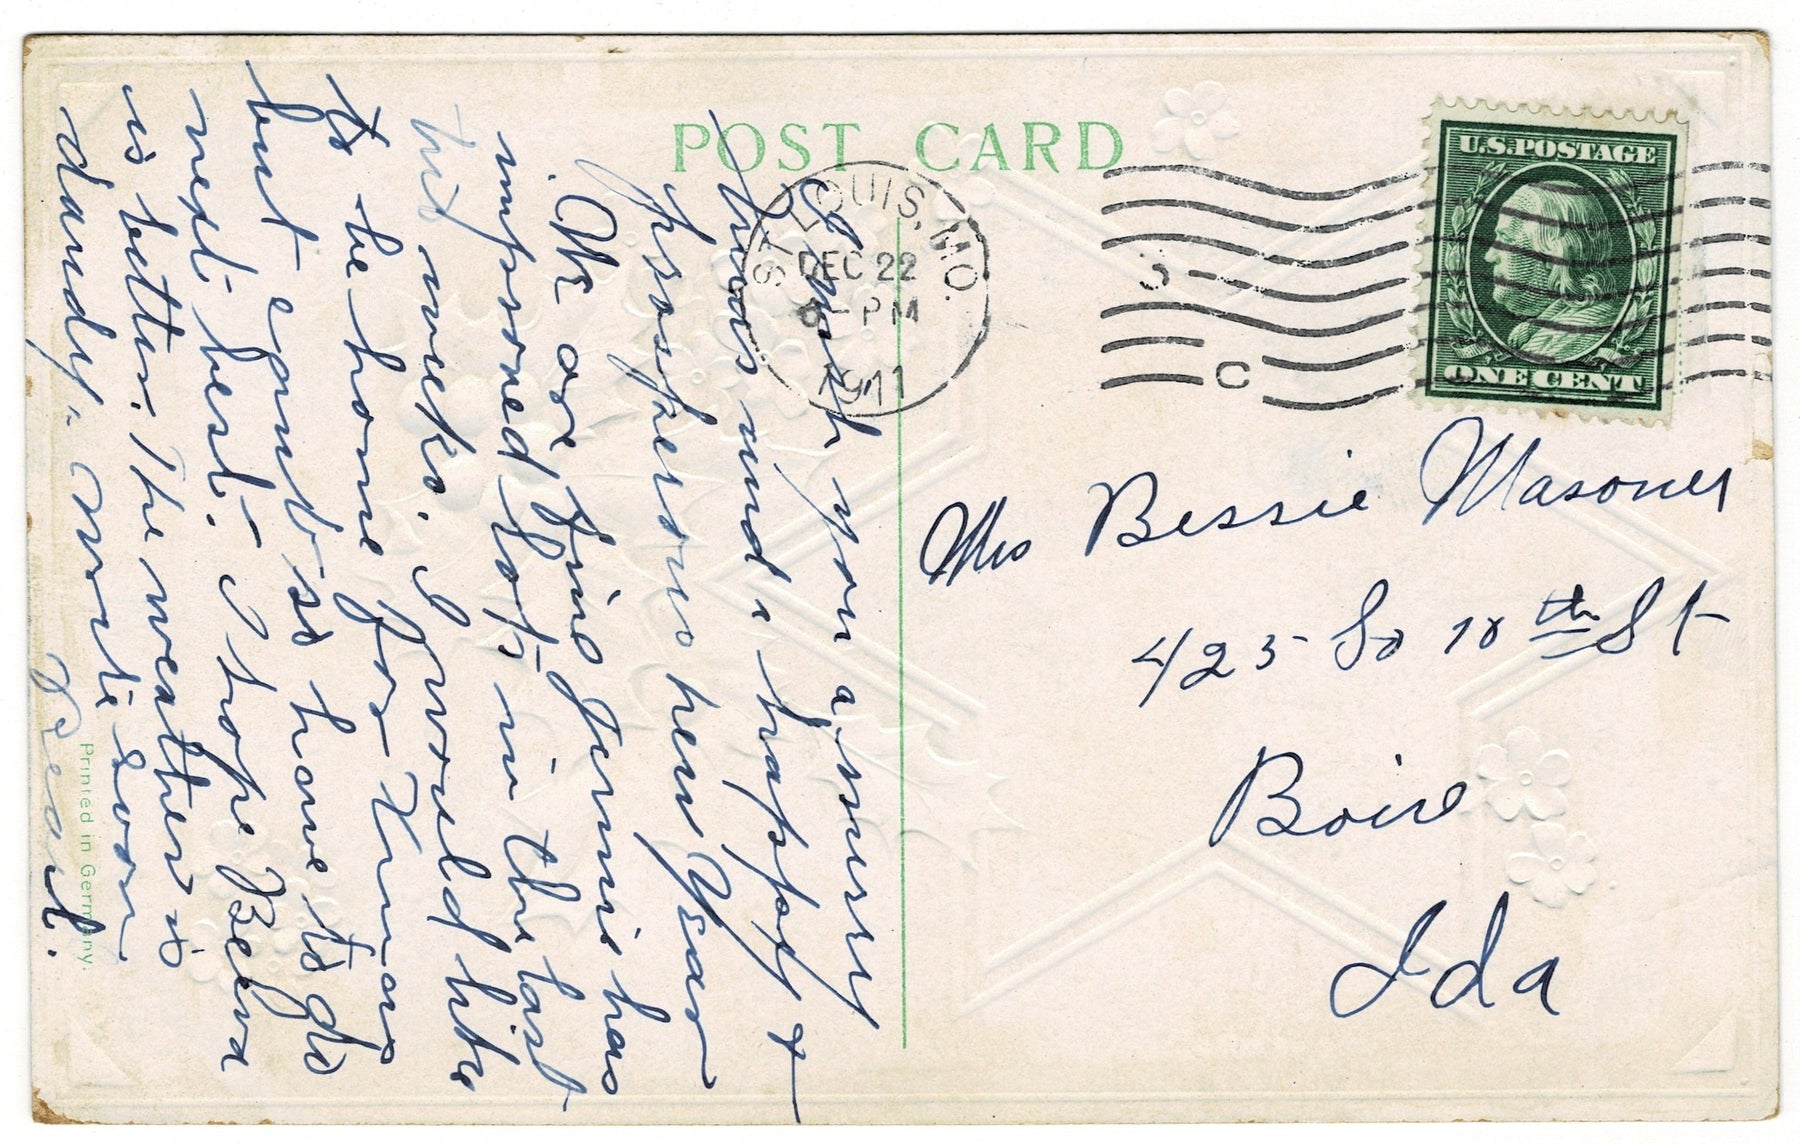 POST CARD
U.S. POSTAGE
ONE CENT
ST LOUIS, MO.
DEC 22
6 - PM
1911
C
Mrs Bessie Masoner
425 So 10th St
Boise
Ida
I wish you a merry
Xmas and a happy &
prosperous new Year
We are fine Jennie has
improved lots in the last
two weeks. I would like
to be home for Xmas
but can't so have to do
next best. I hope Belva
is better. The weather is
dandy - Write soon
Pearl.
Printed in Germany.